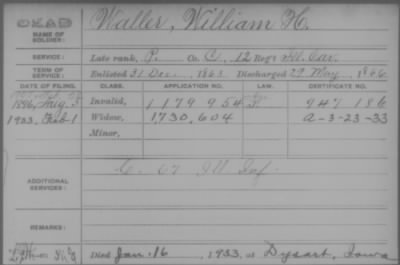 DEAD
Waller, William H.
NAME OF SOLDIER:
SERVICE: Late rank, P. Co. C, 12 Reg't Ill. Cav.
TERM OF SERVICE: Enlisted 31 Dec., 1863 Discharged 29 May, 1866
DATE OF FILING. CLASS. APPLICATION NO. LAW. CERTIFICATE NO.
1896, Aug. Invalid, 1179954 947186
1933, Feb 1 Widow, 1,730,604 A-3-23-33
Minor,
ADDITIONAL SERVICES: C. 67 Ill Inf.
REMARKS:
Died Jan. 16, 1933, at Dysart, Iowa